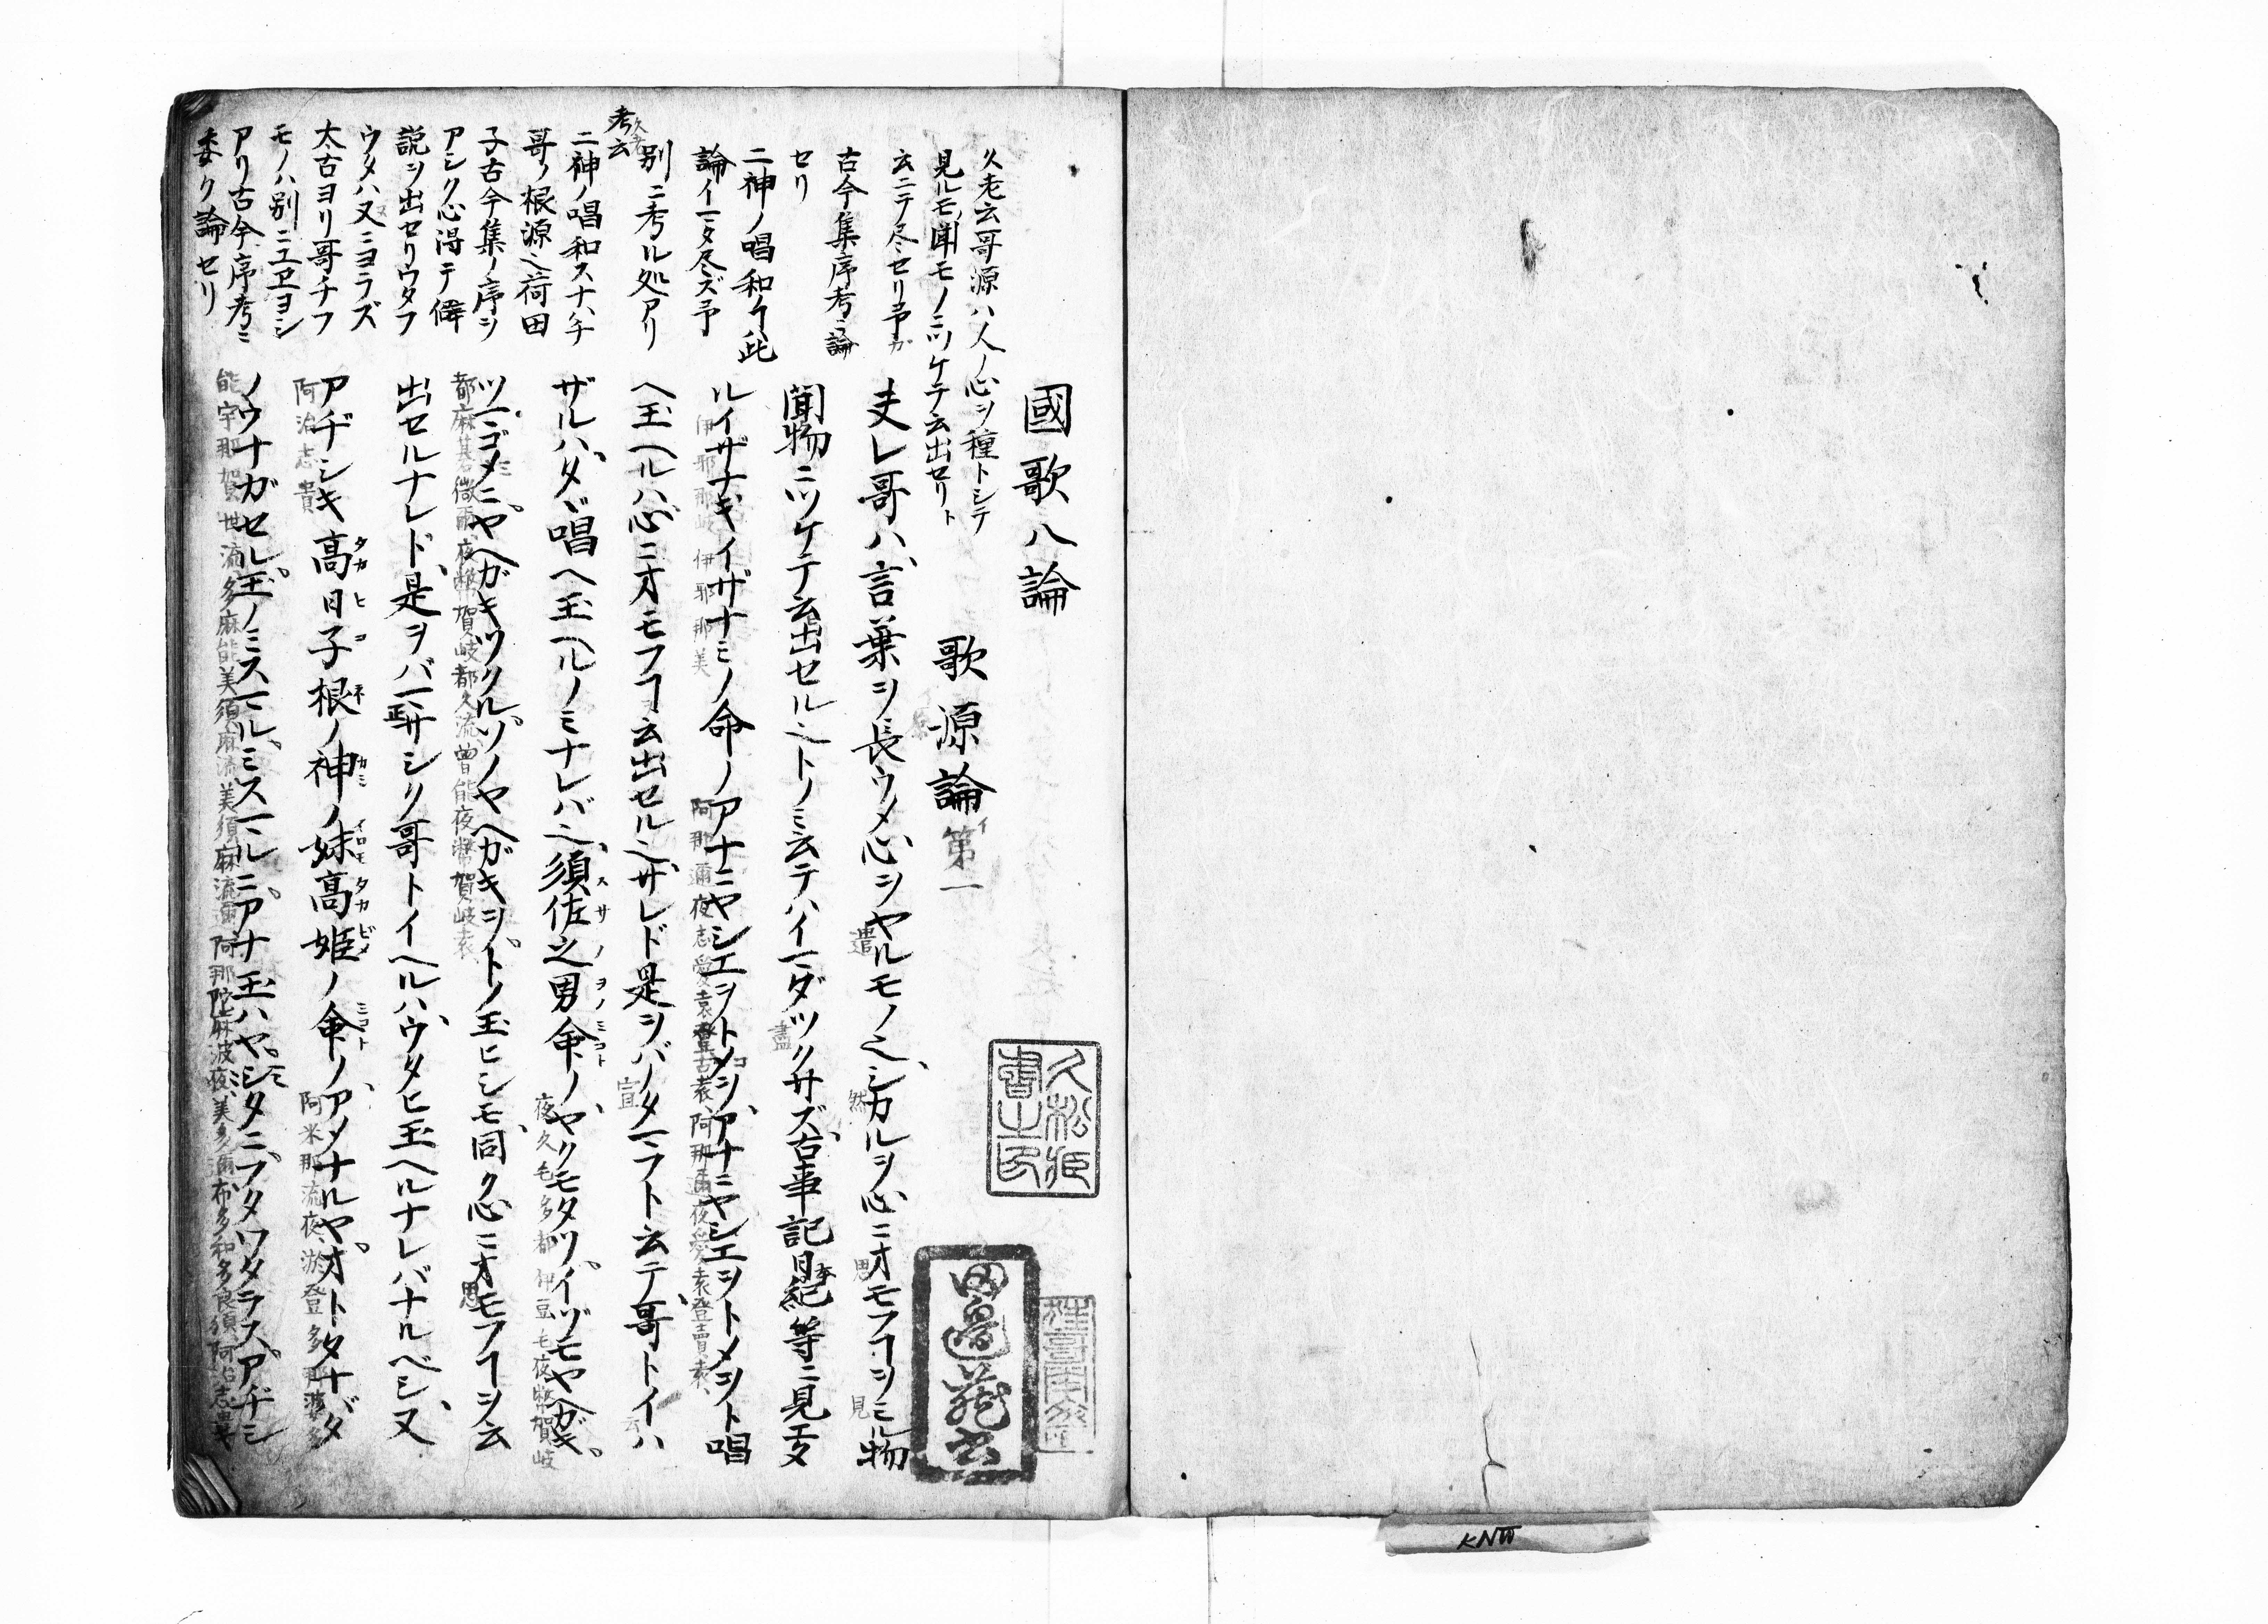 國歌八論
歌源論第一
夫レ哥ハ言葉ヲ長ウメ心ヲヤルモノ也シカルヲ心ニオモフヿヲミル物
聞物ニツケテ云出セル也トノミ云テハイマダツクサズ古事記日本紀等ニ見エタ
ルイザナギイザナミノ命ノアナニヤシエヲトメヲアナニヤシエヲトメヲト唱
ヘ玉ヘルハ心ニオモフヿヲ云出セル也サレド是ヲバノタマフト云テ哥トイハ
ザルハタヾ唱ヘ玉ヘルノミナレバ也須佐之男命ノヤクモタツイヅモヤヘガキ
ツマゴメニヤヘガキツクルソノヤヘガキヲトノ玉ヒシモ同ク心ニオモフヿヲ云
出セルナレド是ヲバマサシク哥トイヘルハウタヒ玉ヘルナレバナルベシ又
アヂシキ高日子根ノ神ノ妹高姫ノ命ノアメナルヤオトタナバタ
ノウナガセル玉ノミスマルミスマルニアナ玉ハヤミタニフタワタラスアヂシ
久老云哥源ハ人ノ心ヲ種トシテ
見ルモノ聞モノニツケテ云出セリト
云ニテ尽セリ予カ
古今集序考ニ論
セリ
二神ノ唱和ケ此
論イマタ尽ズ予
別ニ考ル処アリ
久老考云
二神ノ唱和スナハチ
哥ノ根源也荷田
子古今集ノ序ヲ
アシク心得テ僻
説ヲ出セリウタフ
ウタハ又ニヨラズ
太古ヨリ哥チフ
モノハ別ニエヱヨシ
アリ古今序考ニ
委ク論セリ
伊邪那岐 伊邪那美
夜久毛多都 伊豆毛夜幣賀岐
都麻碁微爾夜幣賀岐都久流曽能夜幣賀岐袁
阿治志貴
阿米那流夜淤登多那婆多
能宇那賀世流多麻能美須麻流美須麻流邇阿那陀麻波夜美多邇布多和多良須阿治志貴
KNW